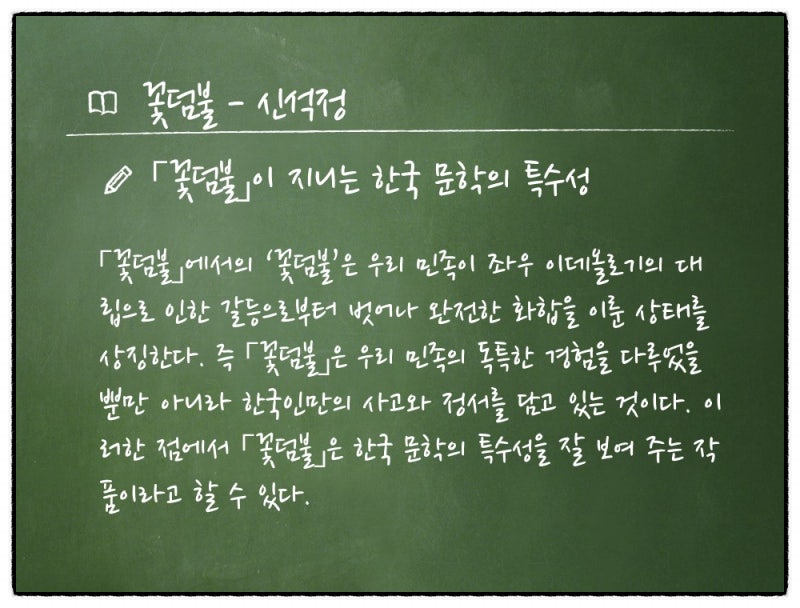 꽃덤불 - 신석정
「꽃덤불」이 지니는 한국 문학의 특수성
「꽃덤불」에서의 '꽃덤불'은 우리 민족이 좌우 이데올로기의 대
립으로 인한 갈등으로부터 벗어나 완전한 화합을 이룬 상태를
상징한다. 즉 「꽃덤불」은 우리 민족의 독특한 경험을 다루었을
뿐만 아니라 한국인만의 사고와 정서를 담고 있는 것이다. 이
러한 점에서 「꽃덤불」은 한국 문학의 특수성을 잘 보여 주는 작
품이라고 할 수 있다.